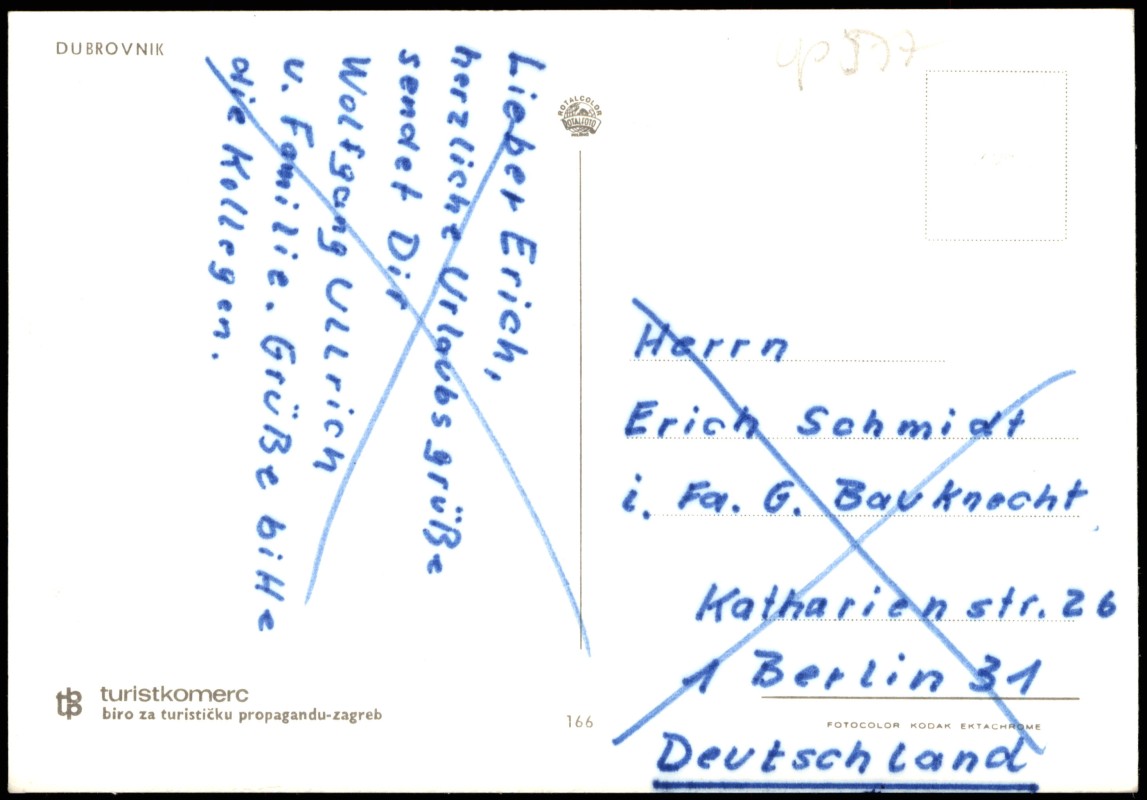 DUBROVNIK
Lieber Erich,
herzliche Urlaubsgrüße
sendet Dir
Wolfgang Ullrich
u. Familie. Grüße bitte
die Kollegen.
ROTALCOLOR
ROTALFOTO
Herrn
Erich Schmidt
i. Fa. G. Bauknecht
Katharien str. 26
1 Berlin 31
Deutschland
turistkomerc
biro za turističku propagandu-zagreb
166
FOTOCOLOR KODAK EKTACHROME